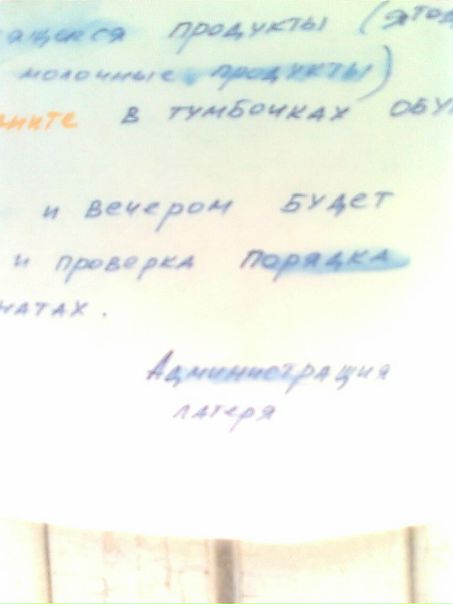 ящиеся продукты (ягод
молочные продукты)
ните в тумбочках обу
и вечером будет
и проверка порядка
натах.
Администрация
лагеря